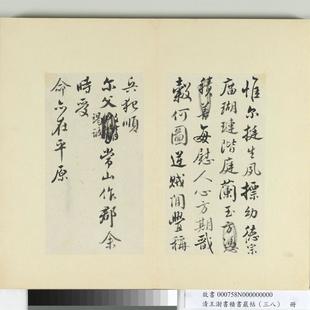 惟尔挺生夙標幼德宗
庿瑚璉階庭蘭玉方憑
積善每慰人心方期戩
穀何圖逆賊閒釁稱
兵犯順
尔父竭誠常山作郡余
時受
命亦在平原
故書 000758N000000000
清王澍書積書巖帖(三八) 冊